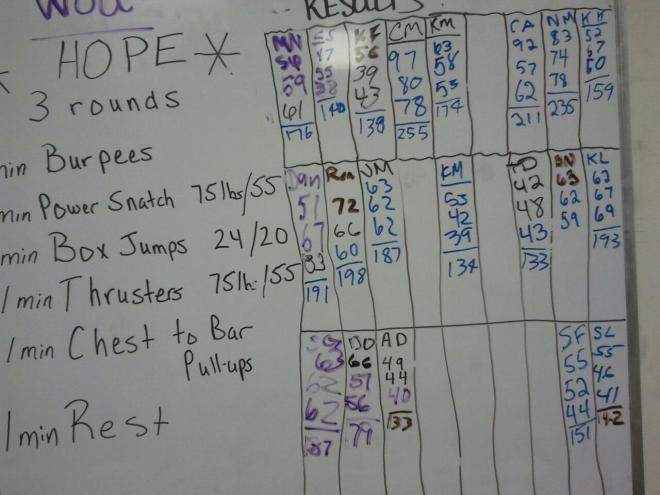 WOD
HOPE
3 rounds
min Burpees
min Power Snatch 75lbs/55
min Box Jumps 24/20
1 min Thrusters 75lb:/55
1 min Chest to Bar
Pull-ups
1 min Rest
RESULTS
MN
56
59
61
176
38
140
KF
56
39
43
138
CM
97
80
78
255
KM
63
58
53
174
CA
92
57
62
211
NM
83
74
78
235
KH
52
57
50
159
Dan
51
67
191
72
66
60
198
NM
63
62
62
187
KM
53
42
39
134
42
48
43
133
63
62
59
KL
67
69
193
63
62
62
187
66
57
56
179
AD
49
44
40
133
SF
55
52
44
151
SL
55
46
41
142